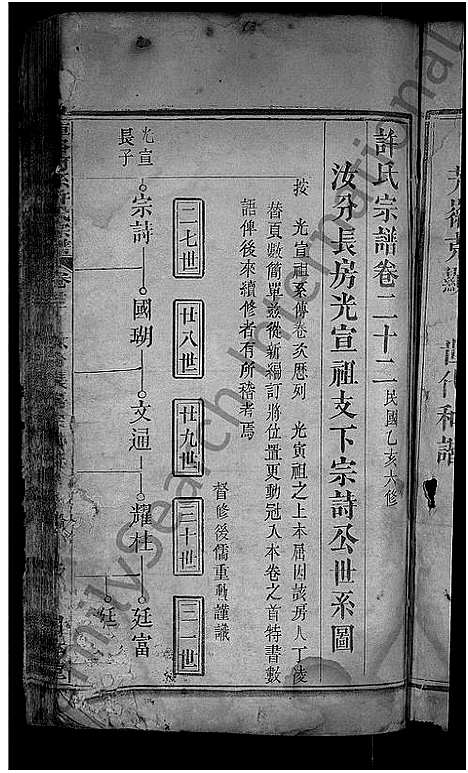 許氏宗譜卷二十二 民國乙亥六修
汝分長房光宣祖支下宗詩公世系圖
按 光宣祖系傳卷次歷列 光寅祖之上本屆因該房人丁凌
替頁數簡單茲從新編訂將位置更動冠入本卷之首特書數
語俾後來續修者有所稽考焉
督修後儒重勳謹識
二七世 廿八世 廿九世 三十世 三一世
光宣長子 宗詩 國瑚 文通 耀杜 廷富
廷
FamilySearch International